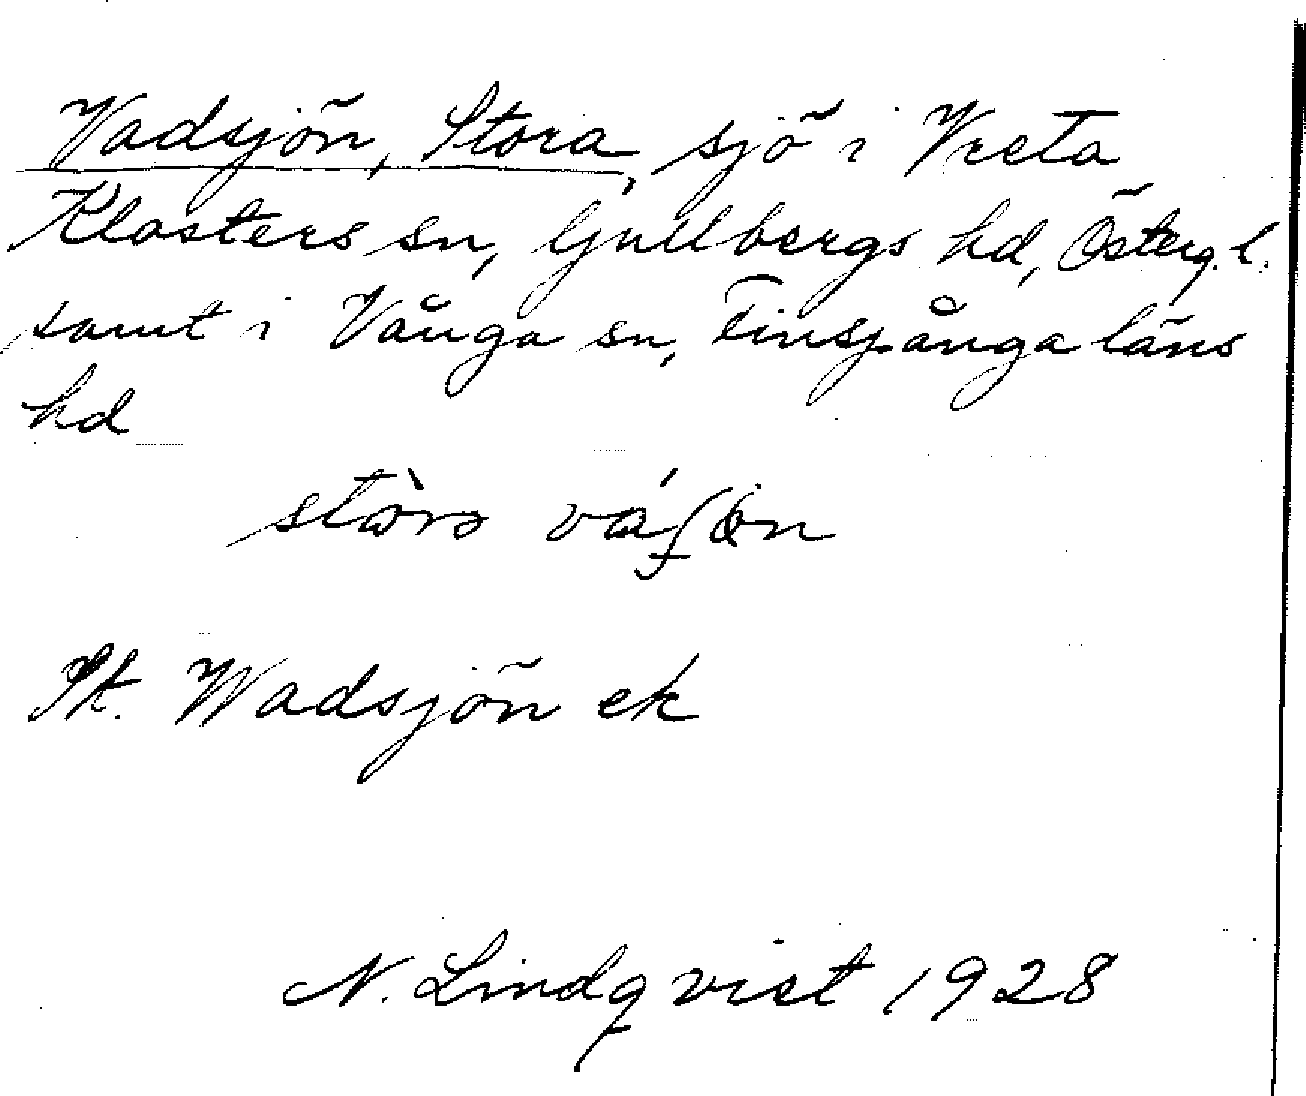 Vadsjön, Stora, sjö i Vreta
Klosters sn, Gullbergs hd, Österg. l.
samt i Vånga sn, Finspånga läns
hd
St. Wadsjön ek
N. Lindqvist 1928